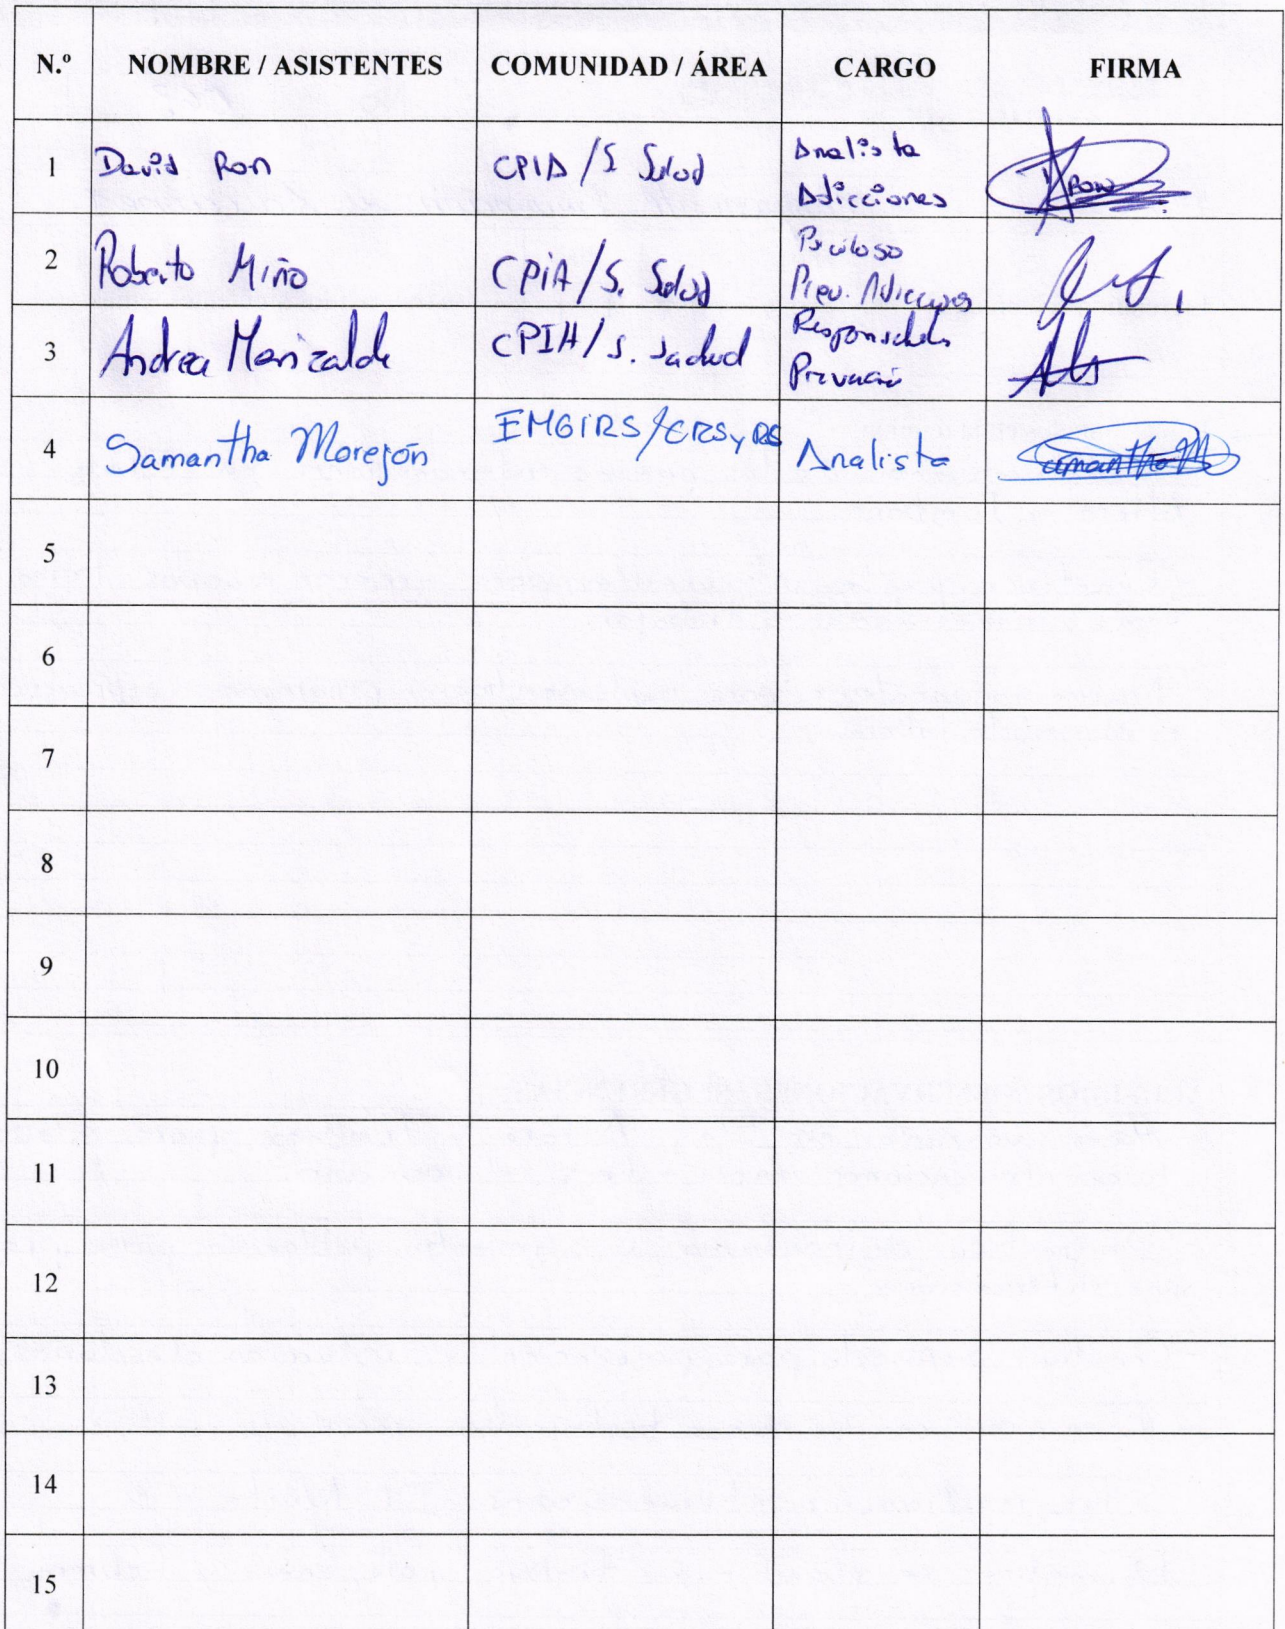 N.º NOMBRE / ASISTENTES COMUNIDAD / ÁREA CARGO FIRMA
1 David Ron CPIA /S Salud Analista
Adicciones
2 Roberto Miño CPiA/S. Salud Psicologo
Prev. Adicciones
3 Andrea Manizalde CPIA/S. Salud Responsable
Prevención
4 Samantha Morejón EMGIRS/ERSyRS Analista
5
6
7
8
9
10
11
12
13
14
15